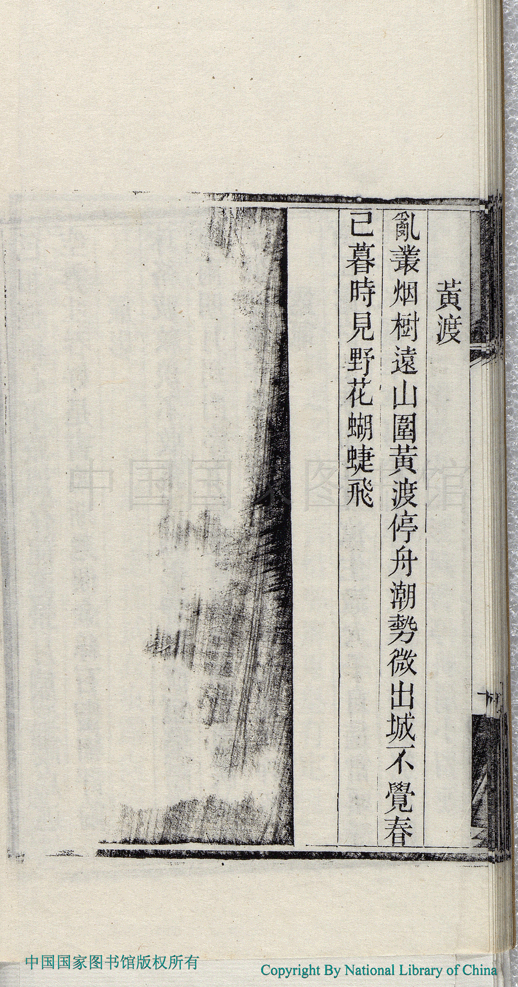 黃渡
亂叢烟樹遠山圍黃渡停舟潮勢微出城不覺春
已暮時見野花蝴蜨飛
中国国家图书馆
中国国家图书馆版权所有
Copyright By National Library of China